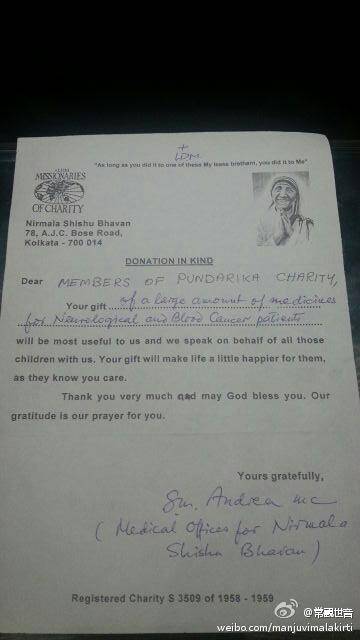 +
LDM
"As long as you did it to one of these My leass brethern, you did it to Me"
MISSIONARIES
OF CHARITY
Nirmala Shishu Bhavan
78, A.J.C. Bose Road,
Kolkata - 700 014
DONATION IN KIND
Dear MEMBERS OF PUNDARIKA CHARITY,
Your gift of a large amount of medicines
for Neurological and Blood Cancer patients
will be most useful to us and we speak on behalf of all those
children with us. Your gift will make life a little happier for them,
as they know you care.
Thank you very much and may God bless you. Our
gratitude is our prayer for you.
Yours gratefully,
Sm. Andrea mc
(Medical Officer for Nirmala
Shishu Bhavan)
Registered Charity S 3509 of 1958 - 1959
@常覞世音
weibo.com/manjuvimalakirti